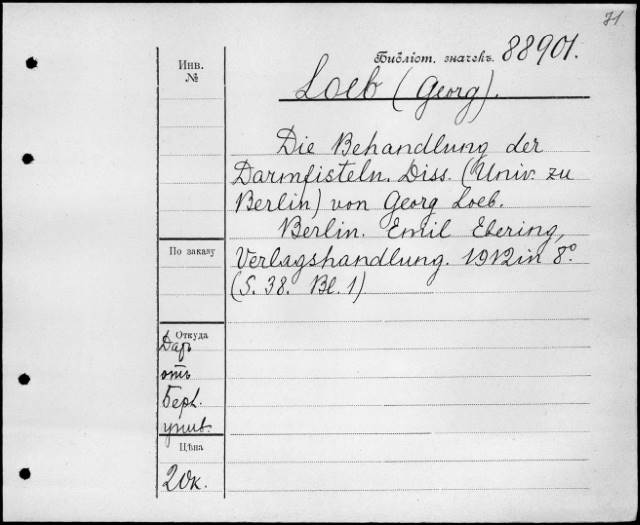 71
Библіот. значекъ. 88901.
Инв.
№
Loeb (Georg).
Die Behandlung der
Darmfisteln. Diss. (Univ. zu
Berlin) von Georg Loeb.
Berlin. Emil Ebering,
Verlagshandlung. 1912 in 8°
(S. 38. Bl. 1)
По заказу
Откуда
Даръ
отъ
Берл.
унив.
Цѣна
20к.